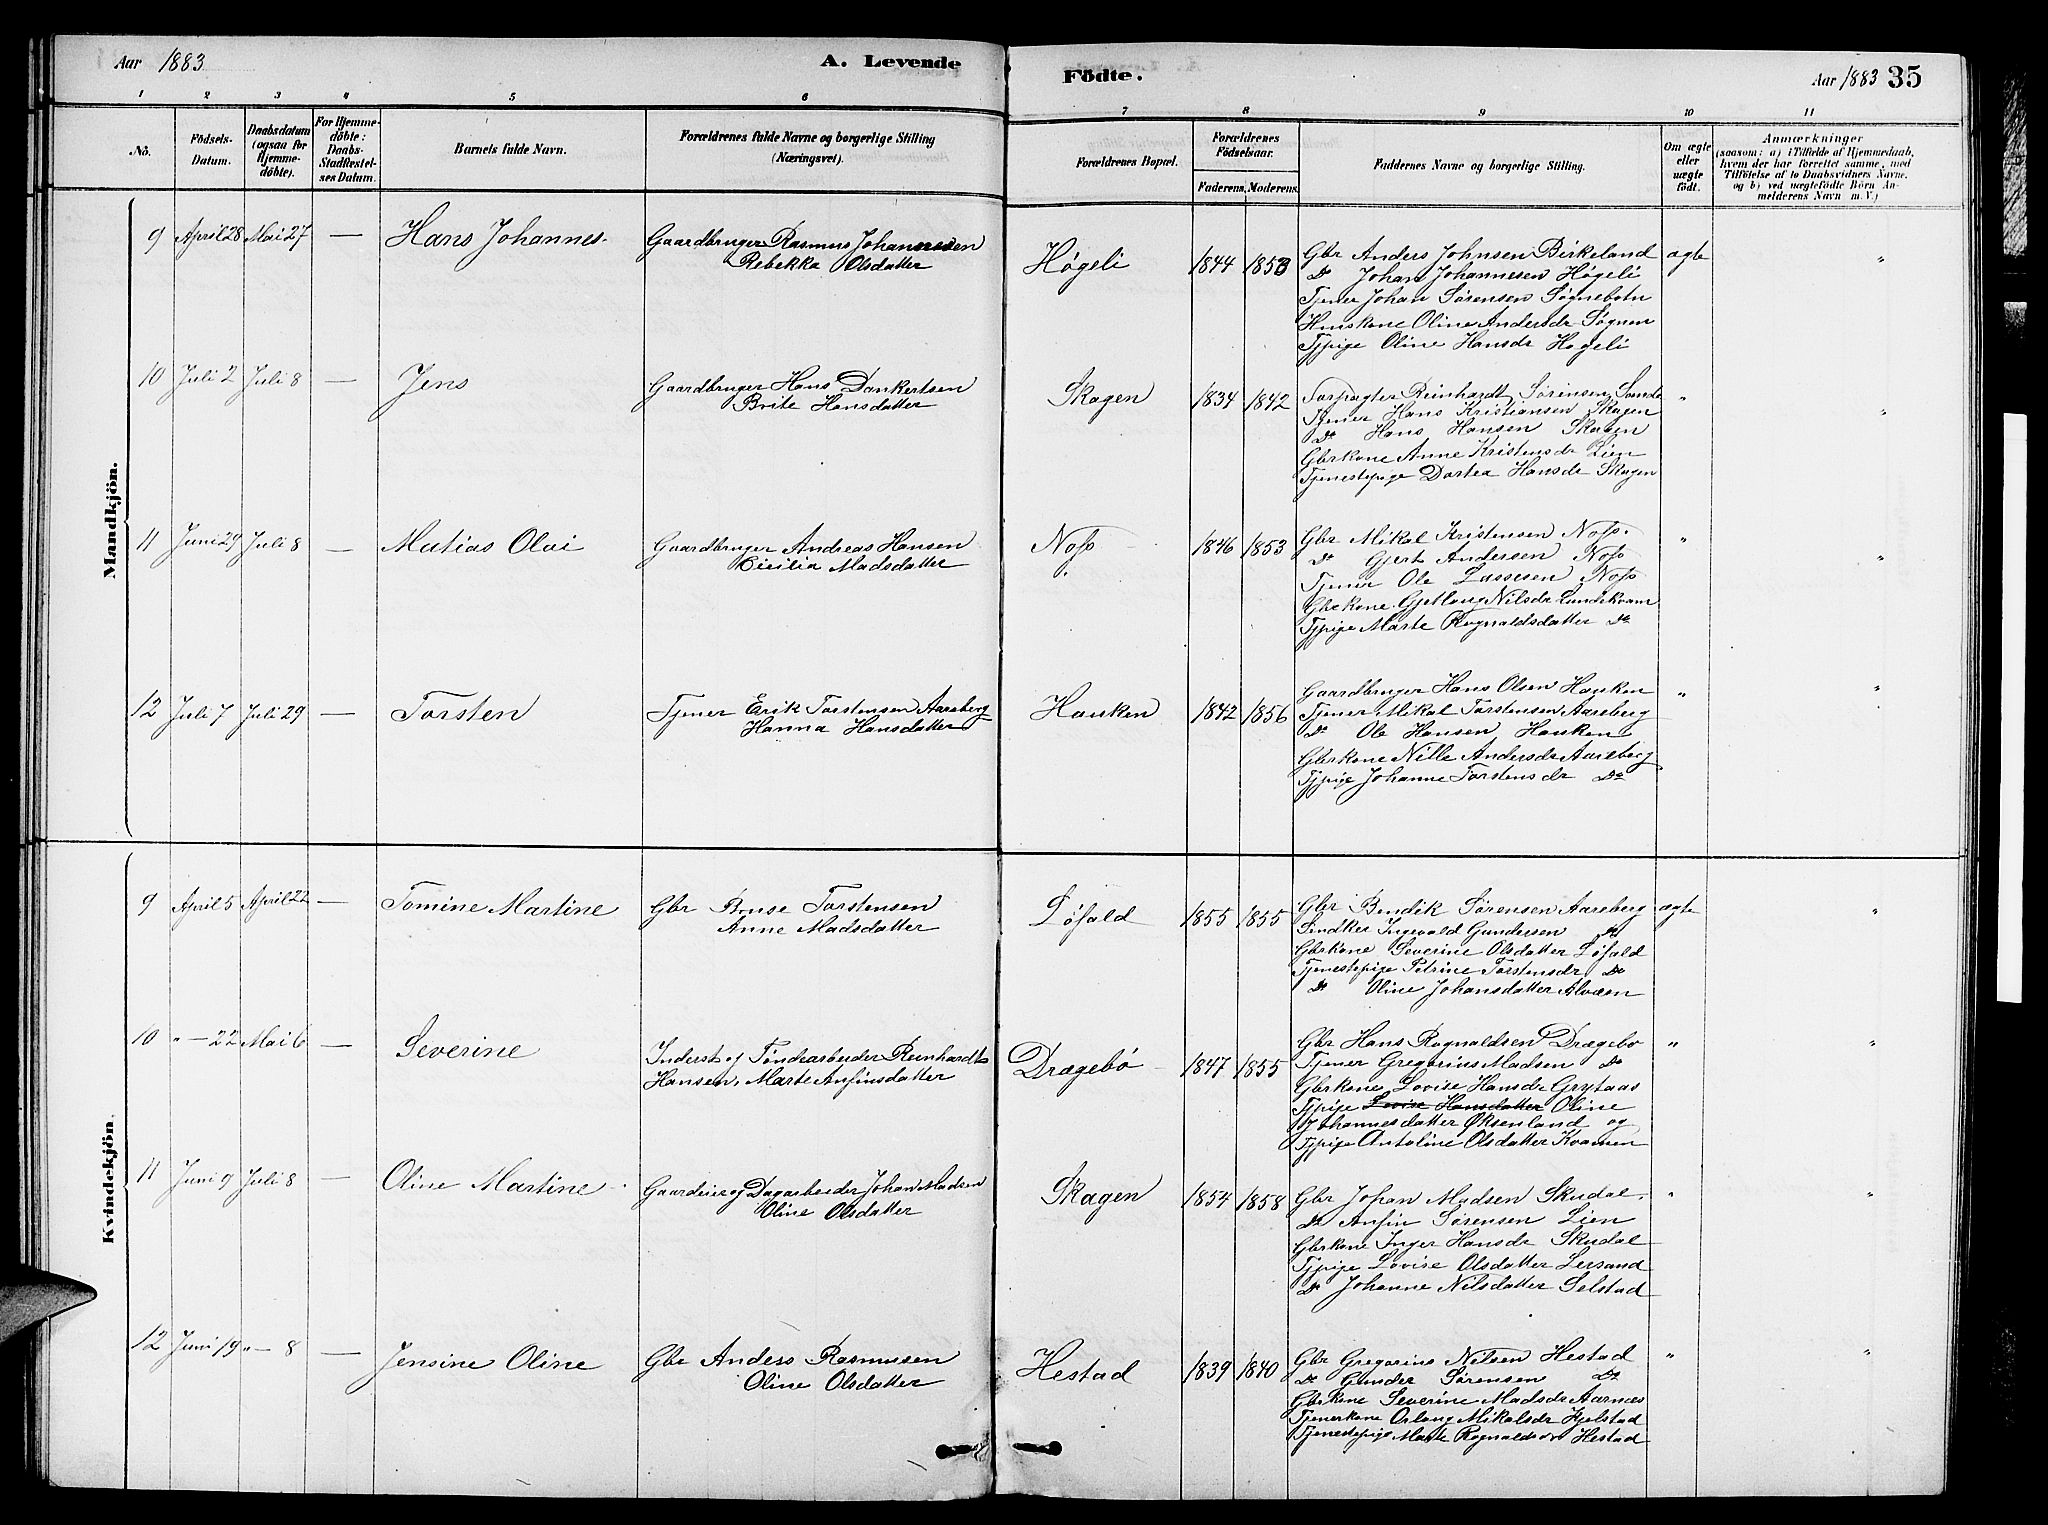 Aar 1883
A. Levende
Födte.
Aar 1883 35
1 2 3 4 5 6 7 8 9 10 11
No.
Födsels-
Datum.
Daabsdatum
(ogsaa for
Hjemme-
döbte).
For Hjemme-
döbte:
Daabs-
Stadfæstel-
ses Datum.
Barnets fulde Navn.
Forældrenes fulde Navne og borgerlige Stilling
(Næringsvei).
Forældrenes Bopæl.
Forældrenes
Födselsaar.
Faderens. Moderens.
Faddernes Navne og borgerlige Stilling.
Om ægte
eller
uægte
födt.
Anmærkninger
(saasom: a) i Tilfælde af Hjemmedaab,
hvem der har forrettet samme, med
Tilföielse af to Daabsvidners Navne,
og b) ved uægtefödte Börn An-
melderens Navn m. V.)
Mandkjön.
9 April 28 Mai 27 — Hans Johannes.
Gaardbruger Rasmus Johannesen
Rebekka Olsdatter
Høgeli 1844 1853
Gbr Anders Johnsen Birkeland
Do Johan Johannesen Høgeli
Tjener Johan Sørensen Søgnebotn
Huskone Oline Andersdr Søgnen
Tjpige Oline Hansdr Høgeli
ægte "
10 Juli 2 Juli 8 — Jens
Gaardbruger Hans Dankertsen
Brite Hansdatter
Skagen 1834 1842
Forpagter Reinhardt Sørensen Sande
Tjener Hans Kristiansen Skagen
Do Hans Hansen Skagen
Gbrkone Anne Kristensdr Lien
Tjenestepige Dortea Hansdr Skagen
" "
11 Juni 29 Juli 8 — Matias Olai
Gaardbruger Andreas Hansen
Cicilia Madsdatter
Noss 1846 1853
Gbr Mikal Kristensen Noss.
Do Gjert Andersen Noss
Tjener Ole Lassesen Noss
Gbrkone Gjetlaug Nilsdr Lundekvam
Tjpige Marte Ragnaldsdatter Do
" "
12 Juli 7 Juli 29 — Torsten
Tjener Erik Torstensen Aareberg
Hanna Hansdatter
Hauken 1842 1856
Gaardbruger Hans Olsen Hauken
Tjener Mikal Torstensen Aareberg
Do Ole Hansen Hauken
Gbrkone Nille Andersdr Aareberg
Tjpige Johanne Torstensdr Do
" "
Kvindekjön.
9 April 5 April 22 — Tomine Martine
Gbr Bruse Torstensen
Anne Madsdatter
Løfald 1855 1855
Gbr Bendik Sørensen Aareberg
Ingevald Gundersen Do
Gbrkone Severine Olsdatter Løfald
Tjenestepige Petrine Torstensdr Do
Do Oline Johansdatter Alværn
ægte "
10 " — 22 Mai 6 — Severine
Inderst og Tøndearbeider Reinhardt
Hansen, Marte Anfinsdatter
Drægebø 1847 1855
Gbr Hans Ragnaldsen Drægebø
Tjener Gregorius Madsen Do
Gbrkone Lovise Hansdr Grytaas
Tjpige Lovise Hansdatter Oline
Johannesdatter Øksenland og
Tjpige Antoline Olsdatter Kvamen
" "
11 Juni 9 Juli 8 — Oline Martine
Gaardeier og Dagarbeider Johan Madsen
Oline Olsdatter
Skagen 1854 1858
Gbr Johan Madsen Skudal.
Do Anfin Sørensen Lien
Gbrkone Inger Hansdr Skudal
Tjpige Lovise Olsdatter Lersand
Do Johanne Nilsdatter Selstad
" "
12 Juni 19 " — 8 — Jensine Oline
Gbr Anders Rasmusen
Oline Olsdatter
Hestad 1839 1840
Gbr Gregorius Nilsen Hestad
Do Gunder Sørensen Do
Gbrkone Severine Madsdr Aarnes
Tjenerkone Orlaug Mikalsdr Hjelstad
Tjenestepige Marte Ragnaldsdr Hestad
" "